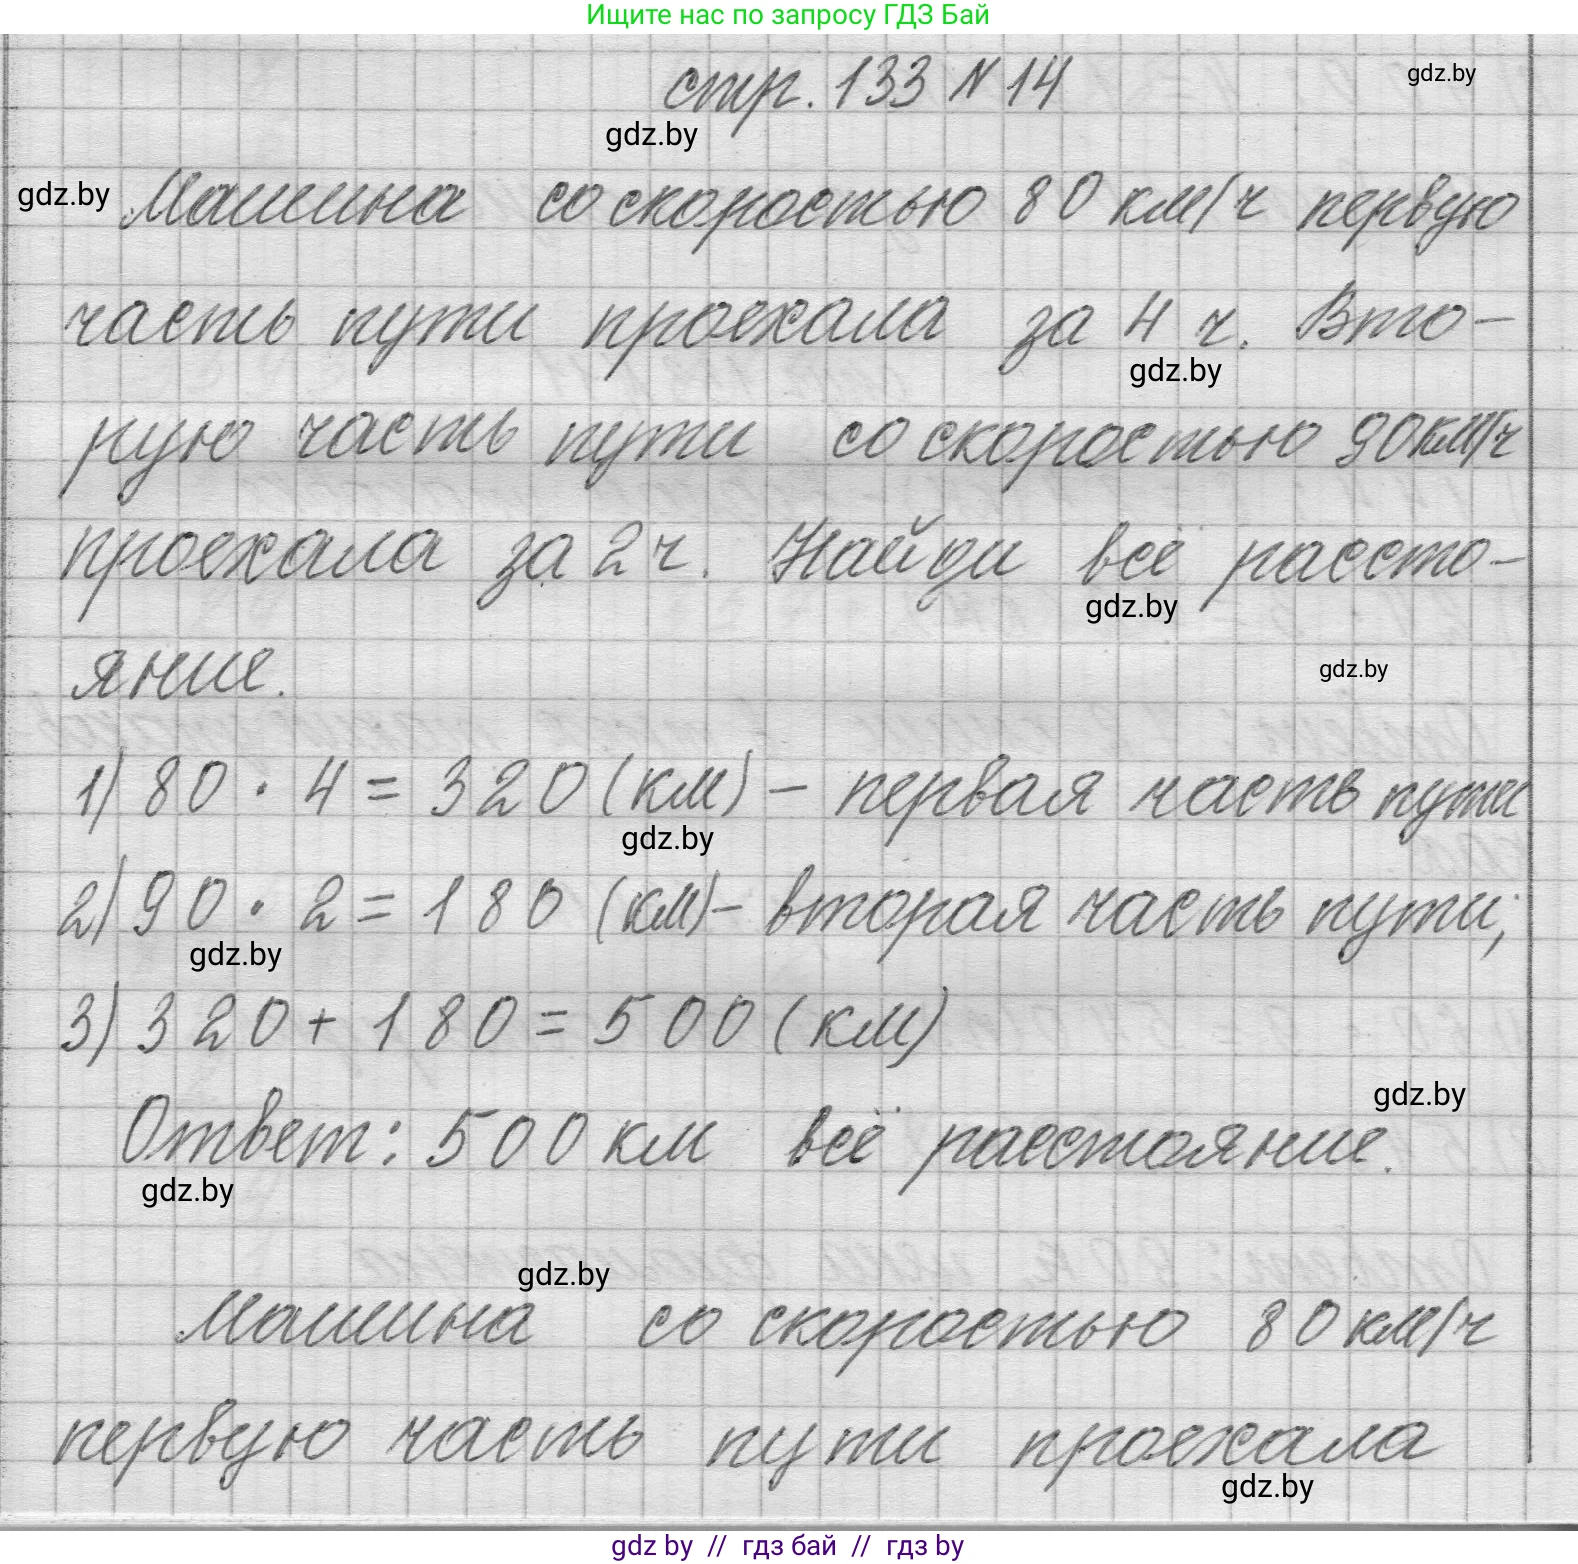 Ищите нас по запросу ГДЗ Бай
стр. 133 N 14
gdz.by
gdz.by
gdz.by
Машина со скоростью 80 км/ч первую
часть пути проехала за 4 ч. Вто-
gdz.by
рую часть пути со скоростью 90 км/ч
проехала за 2 ч. Найди всё рассто-
gdz.by
яние.
gdz.by
1) 80 · 4 = 320 (км) – первая часть пути
gdz.by
2) 90 · 2 = 180 (км) – вторая часть пути;
gdz.by
3) 320 + 180 = 500 (км)
gdz.by
Ответ: 500 км всё расстояние.
gdz.by
gdz.by
Машина со скоростью 80 км/ч
первую часть пути проехала
gdz.by
gdz by // гдз бай // gdz by